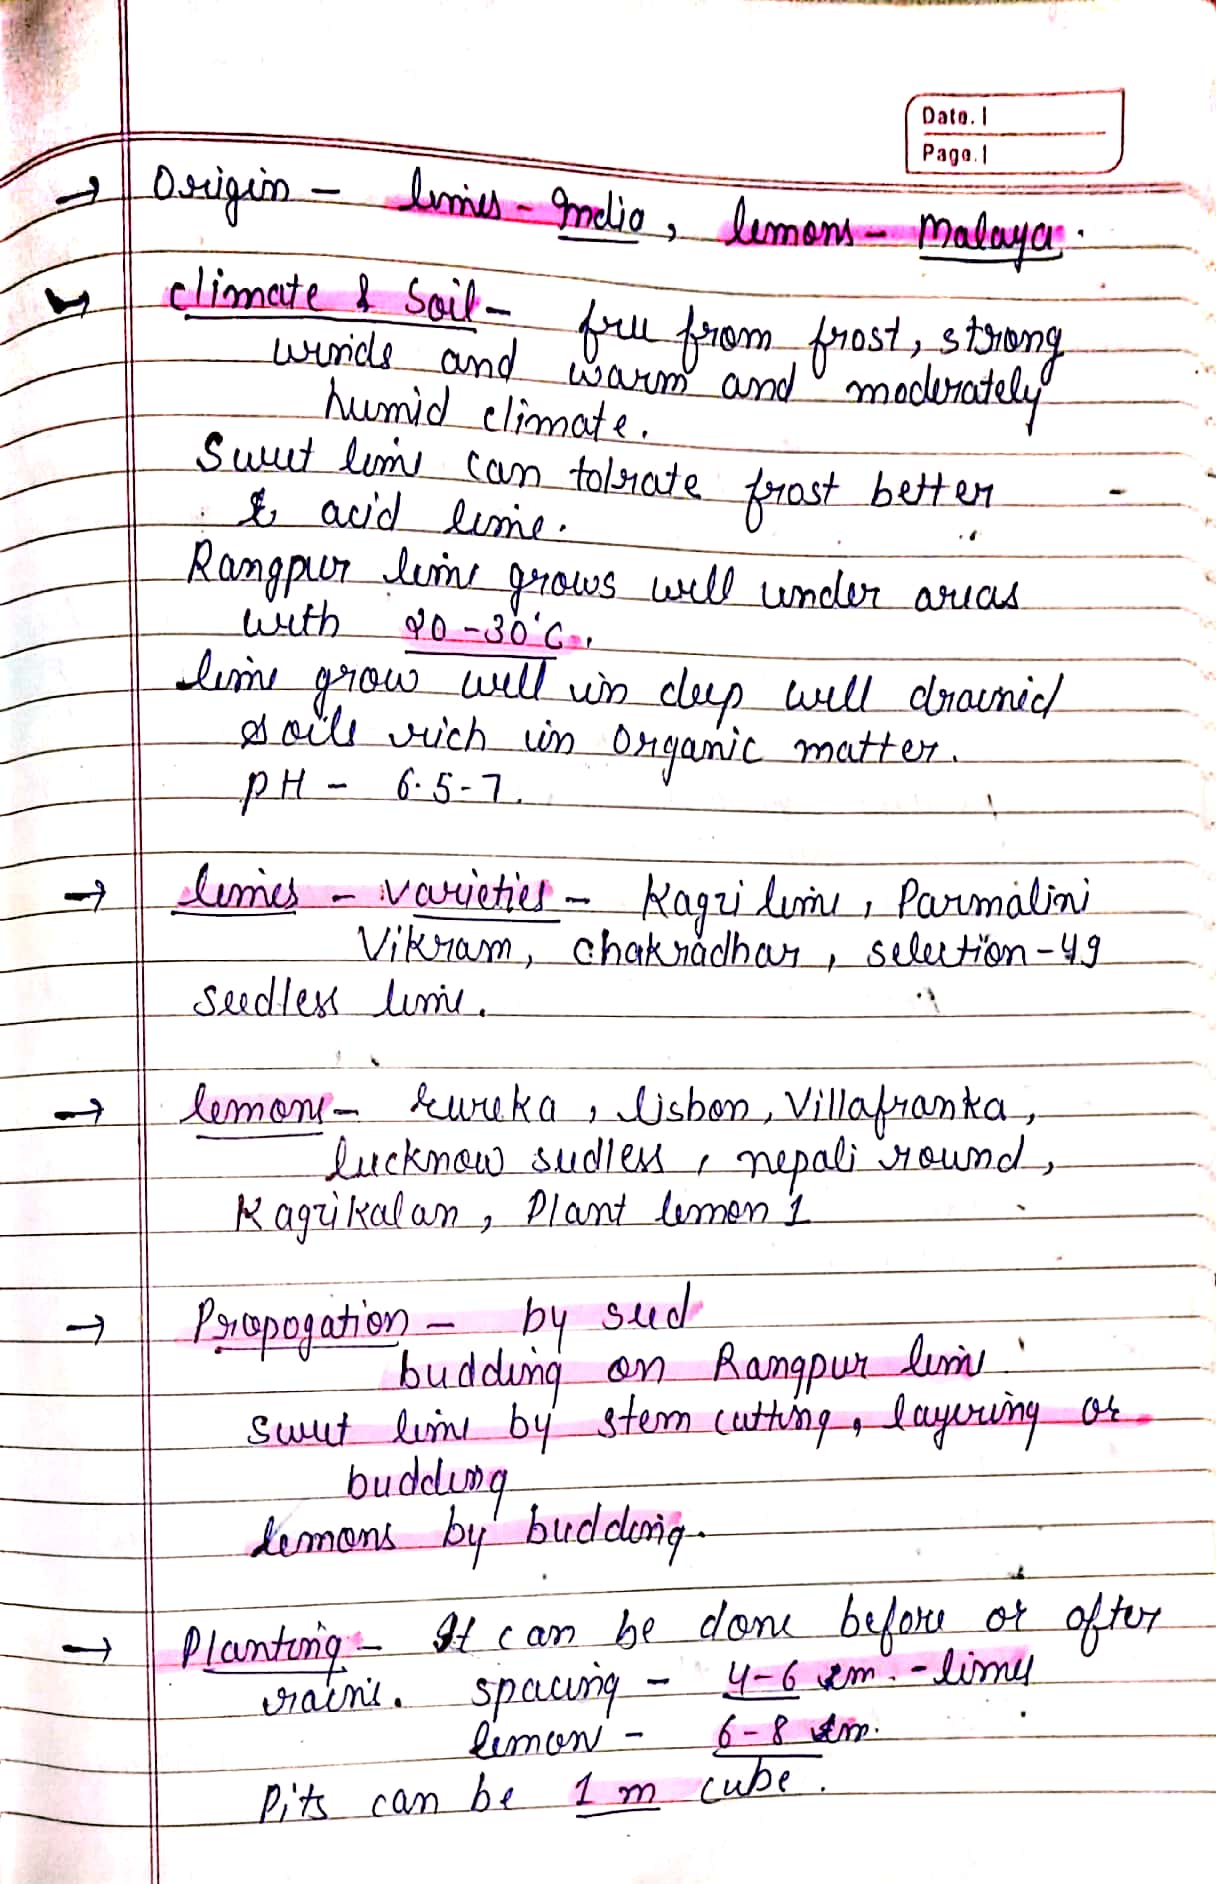 Date.
Page.
→ Origin - limes - India, lemons - Malaya.
→ Climate & Soil - free from frost, strong
winds and warm and moderately
humid climate.
Sweet lime can tolrate frost better
& acid lime.
Rangpur lime grows well under areas
with 20-30°C.
lime grow well in deep well drained
soils rich in organic matter.
pH - 6.5-7.
→ limes - varieties - Kagzi lime, Parmalini
Vikram, chakradhar, selection-49
seedless lime.
→ lemons - Eureka, lisbon, Villafranka,
lucknow seedless, nepali round,
Kagzikalan, Plant lemon 1
→ Propogation - by seed
budding on Rangpur lime
Sweet lime by stem cutting, layering or
budding
lemons by budding.
→ Planting - It can be done before or after
rains. spacing - 4-6 m. - limes
lemon - 6-8 m.
Pits can be 1 m cube.